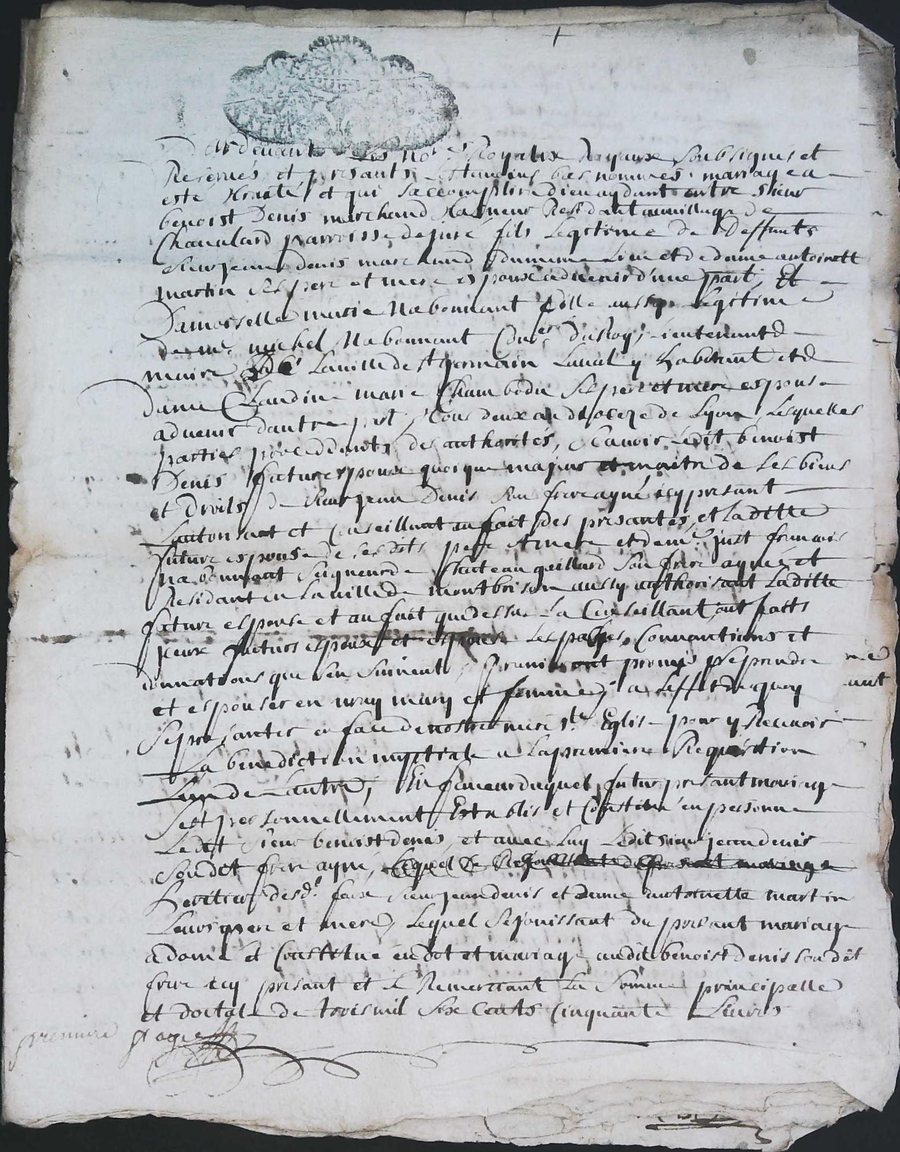 Par devant les No.res Royaux soubsignes et
Reservés et presants les tesmoins bas nommes mariage a
este traité et qui saccomplira Dieu aydant entre sieur
benoist Denis marchand Residant au village de
Chavalard parroisse de jure fils Legitime de Deffunts
Sieur jean denis marchand dudit me lieu et de dame antoinette
martin ses pere et mere espoux advenir d'une part, Et
Damoiselle marie Nabonnant fille aussy Legitime
de me. michel Nabonnant Con.er du Roy, Lieutenant de
maire de la ville de st germain Laval y habitant et de
dame Claudine marie Chambodu ses pere et mere espouse
advenir dautre part, Tous deux au diocoze de Lyon, Lesquelles
parties procceddants des authorités, Scavoir Ledit benoist
Denis futur espoux quoique majeur et maitre de ses biens
et droits, de Sieur jean Denis son frere ayné icy presant
Lautorisant et Conseillant au fait des presantes, et Laditte
future espouse de sesdits pere et mere et de me. just francois
nabonnant Seigneur de Chateau gaillard son frere aynéé et
Residant en la ville de montbrison aussy authorisant Laditte
future espouse et au fait que dessus La Conseillant, ont faits
iceux futurs espoux et espouse les pactes, Convanctions et
donnations que sen suivent, Premier ont promis se prendre
et espouser en vray mary et femme, a Leffet de quoy
se presanter en face de nostre mere ste. Eglise pour y Recevoir
La benediction nuptiale a La premiere Requisition
Lun de Lautre, En faveur duquel futur presant mariage
sest personnellement Establis et Constitué en personne
Ledit Sieur benoist denis, et avec Luy Ledit sieur jean denis
Son dit frere ayné,
heritier desd.s feux sieur jean denis et dame antoinette martin
Leurs pere et mere, Lequel se jouissant du presant mariage
a donné et Constitué en dot et mariage audit benoist denis son dit
frere icy presant et le Remerciant La Somme principalle
et doctale de trois mil Six Cents Cinquante Livres
premiere page